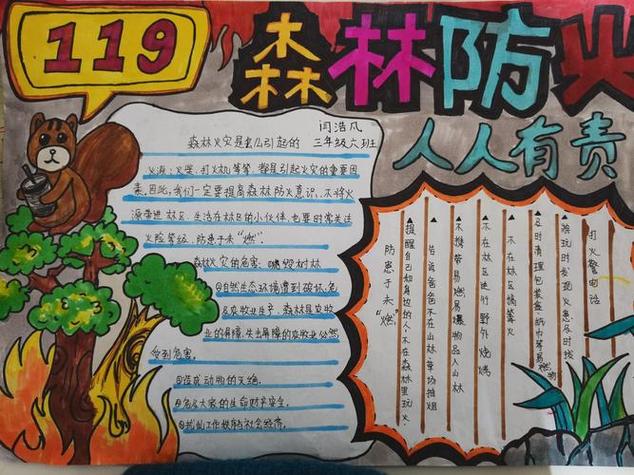 119
森林防火
人人有责
闫浩凡
三年级六班
森林火灾是怎么引起的
火源:火柴、打火机等等,都是引起火灾的重要因
素。因此,我们一定要提高森林防火意识,不将火
源带进林区,生活在林区的小伙伴,也要时常关注
火险等级,防患于未“燃”。
森林火灾的危害:烧毁树林
①自然生态环境遭到破坏,危
及农牧业生产,森林是农牧
业的屏障,失去屏障的农牧业必然
受到危害。
②造成动物的灭绝。
③危及大家的生命财产安全。
打火警电话
游玩时发现火患及时找
及时清理包装盒、纸巾等易燃物
不在林区搞篝火
不在林区进行野外烧烤
不携带易燃易爆物品入山林
告诉爸爸不在山林草场抽烟
提醒自己和身边的人不在森林里玩火
防患于未“燃”